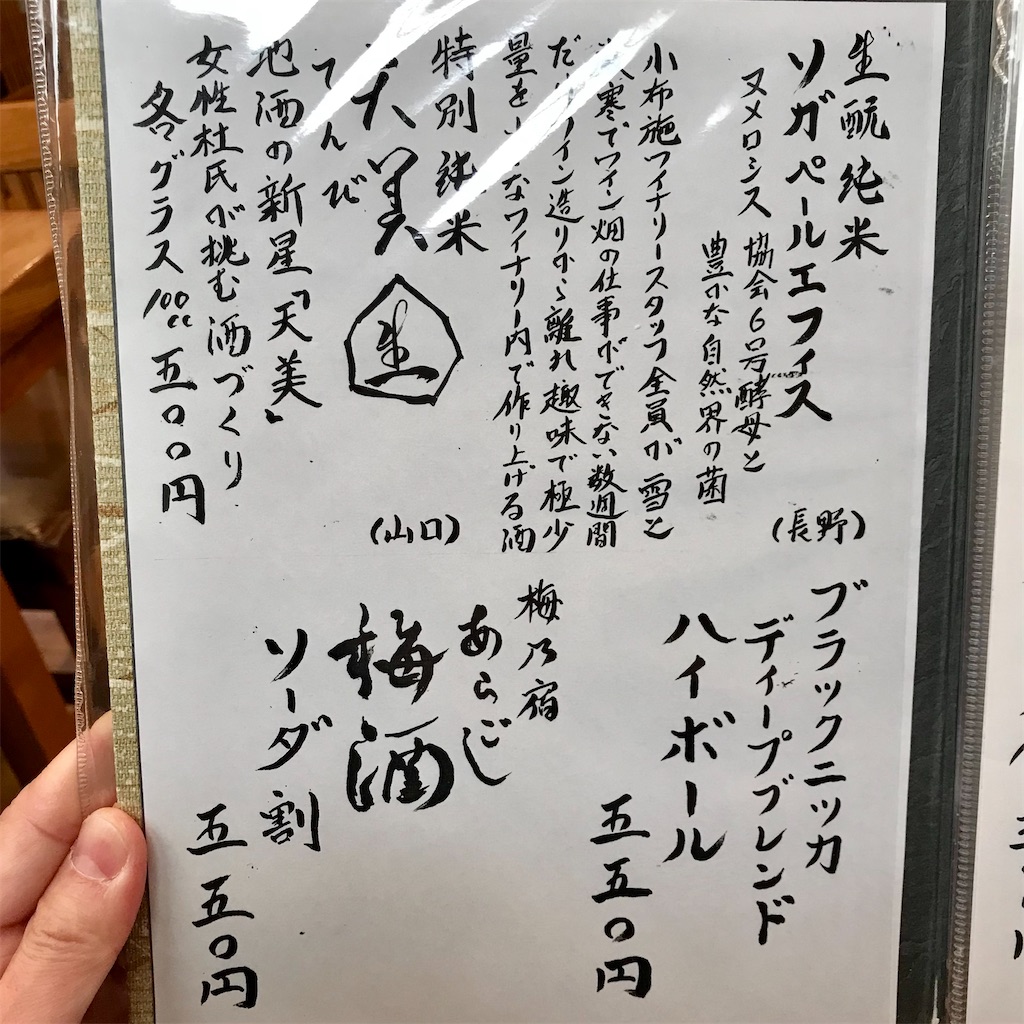 生酛純米
ソガペールエフィス
ヌメロシス 協会6号酵母と
豊かな自然界の菌
(長野)
小布施ワイナリースタッフ全員が雪と
寒でワイン畑の仕事ができない数週間
だけワイン造りから離れ趣味で極少
量を な ワイナリー内で作り上げる酒
特別純米
天美 生
てんび
(山口)
地酒の新星「天美」
女性杜氏が挑む酒づくり
各グラス100cc 五〇〇円
ブラックニッカ
ディープブレンド
ハイボール
五五〇円
梅乃宿
あらごし
梅酒
ソーダ割
五五〇円